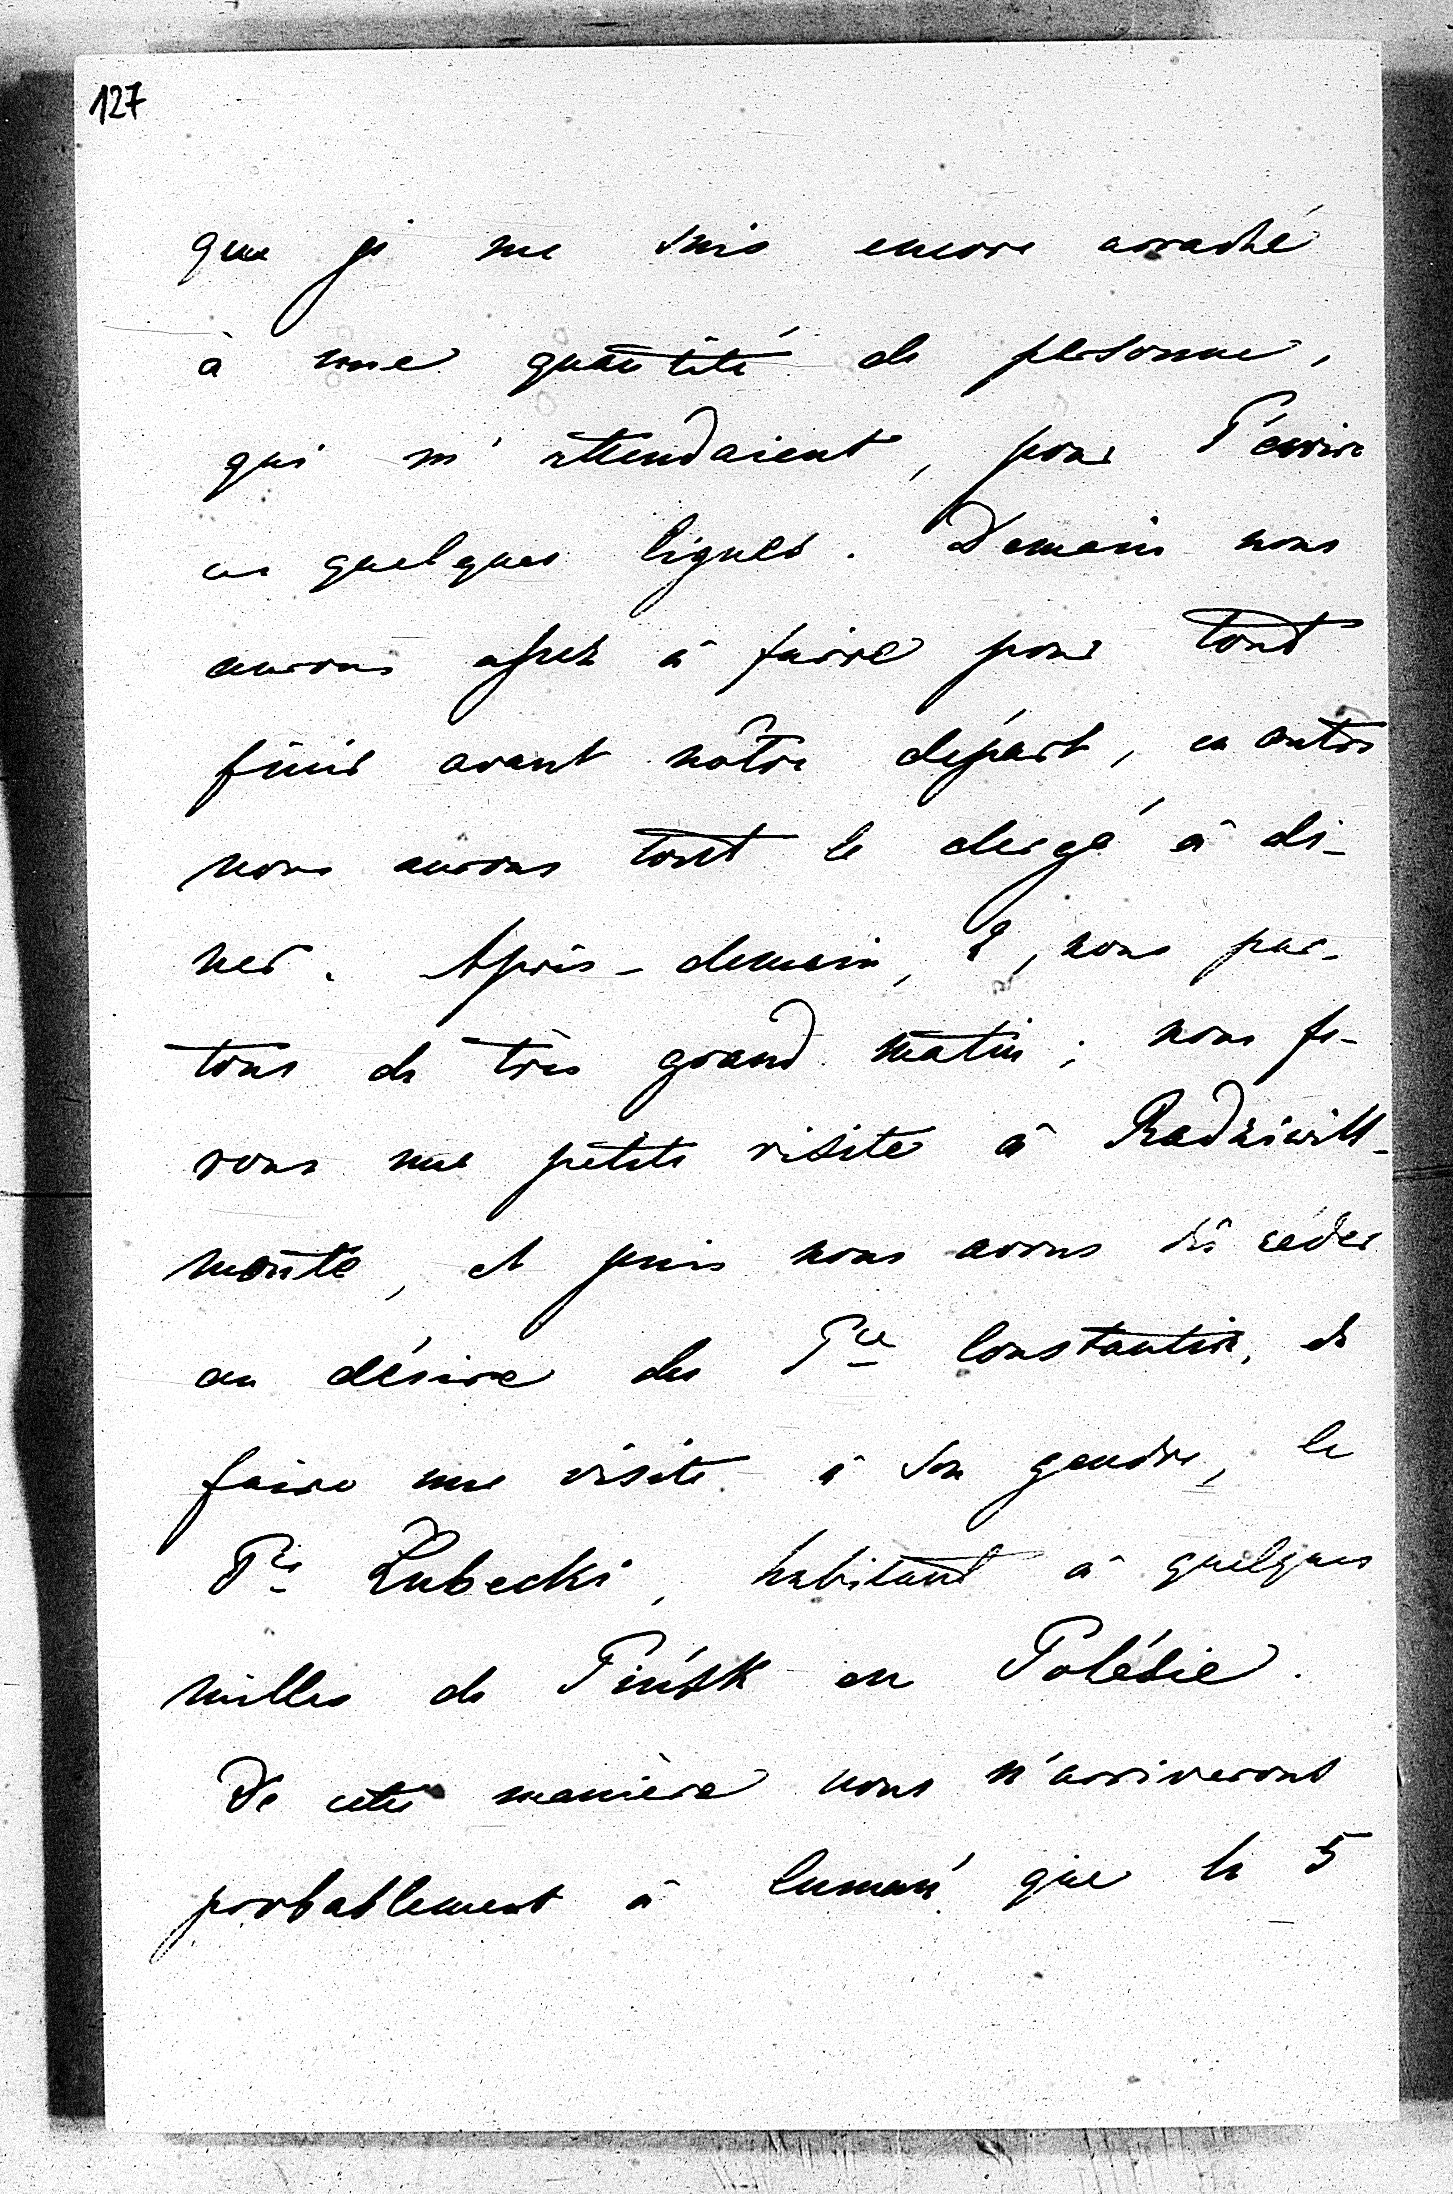 127
que je me suis encore arraché
à une quantité de personne,
qui m'attendaient, pour T'écrire
ces quelques lignes. Demain nous
aurons assez à faire pour tout
finir avant nôtre départ, en outre
nous aurons tout le clergé à di-
ner. Après-demain, 2, nous par-
tons de très grand matin; nous fe-
rons une petite visite à Radziwill-
monte, et puis nous avons dû céder
au désire du Pce Constantin, de
faire une visite à son gendre, le
Pce Lubecki, habitant à quelques
milles de Pińsk en Polésie.
De cette manière nous n'arriverons
porbablement à que le 5